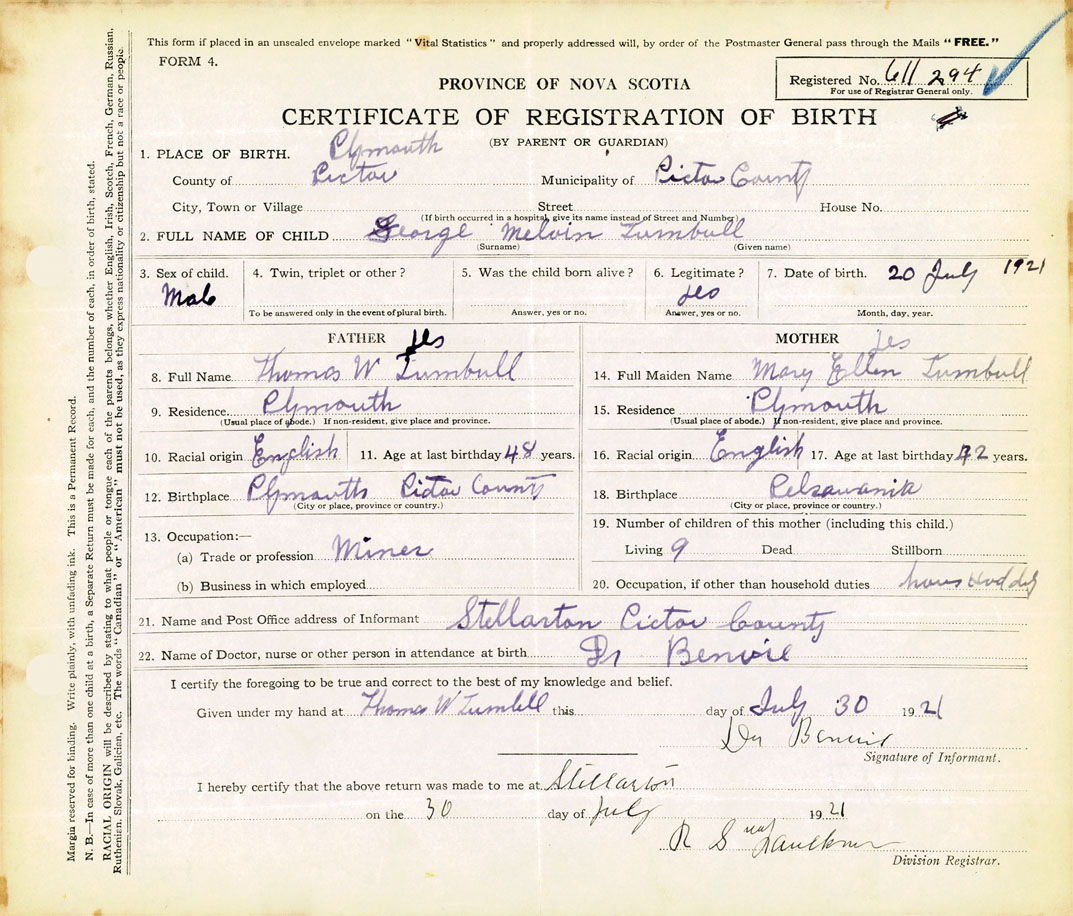 This form if placed in an unsealed envelope marked "Vital Statistics" and properly addressed will, by order of the Postmaster General pass through the Mails "FREE."
FORM 4.
Registered No. 611 294
For use of Registrar General only.
PROVINCE OF NOVA SCOTIA
CERTIFICATE OF REGISTRATION OF BIRTH
(BY PARENT OR GUARDIAN)
1. PLACE OF BIRTH. Plymouth
County of Pictou Municipality of Pictou County
City, Town or Village Street House No.
(If birth occurred in a hospital, give its name instead of Street and Number)
2. FULL NAME OF CHILD George Melvin Turnbull
(Surname) (Given name)
3. Sex of child. 4. Twin, triplet or other? 5. Was the child born alive? 6. Legitimate? 7. Date of birth. 20 July 1921
Male yes
To be answered only in the event of plural birth. Answer, yes or no. Answer, yes or no. Month, day, year.
FATHER yes MOTHER yes
8. Full Name Thomas W Turnbull
9. Residence Plymouth
(Usual place of abode.) If non-resident, give place and province.
10. Racial origin English 11. Age at last birthday 48 years.
12. Birthplace Plymouth Pictou County
(City or place, province or country.)
13. Occupation:—
(a) Trade or profession Miner
(b) Business in which employed
14. Full Maiden Name Mary Ellen Turnbull
15. Residence Plymouth
(Usual place of abode.) If non-resident, give place and province.
16. Racial origin English 17. Age at last birthday years.
18. Birthplace
(City or place, province or country.)
19. Number of children of this mother (including this child.)
Living 9 Dead Stillborn
20. Occupation, if other than household duties
21. Name and Post Office address of Informant Stellarton Pictou County
22. Name of Doctor, nurse or other person in attendance at birth Dr Benvie
I certify the foregoing to be true and correct to the best of my knowledge and belief.
Given under my hand at Thomas W Turnbull this day of July 30 1921
Dr Benvie
Signature of Informant.
I hereby certify that the above return was made to me at Stellarton
on the 30 day of July 1921
R S Faulkner
Division Registrar.
Margin reserved for binding. Write plainly, with unfading ink. This is a Permanent Record.
N. B.—In case of more than one child at a birth, a Separate Return must be made for each, and the number of each, in order of birth, stated.
RACIAL ORIGIN will be described by stating to what people or tongue each of the parents belongs, whether English, Irish, Scotch, French, German, Russian,
Ruthenian, Slovak, Galician, etc. The words "Canadian" or "American" must not be used, as they express nationality or citizenship but not a race or people.